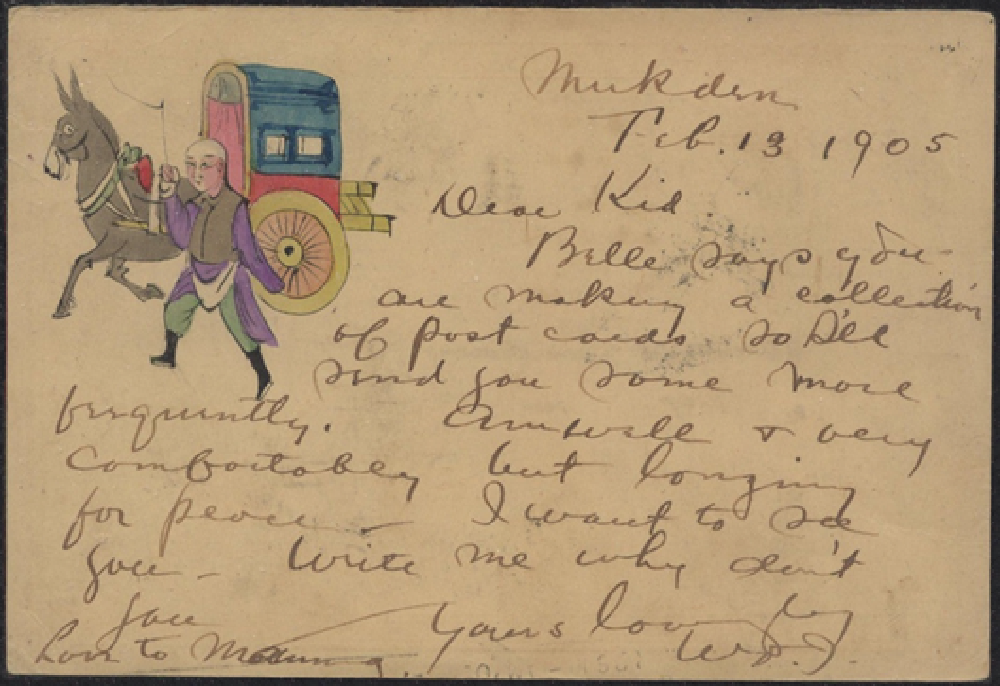 Mukden
Feb. 13 1905
Dear Kid
Belle says you
are making a collection
of post cards so I'll
send you some more
frequently. Am well & very
comfortably but longing
for peace - I want to see
you - Write me why don't
you
Yours lovingly
Love to